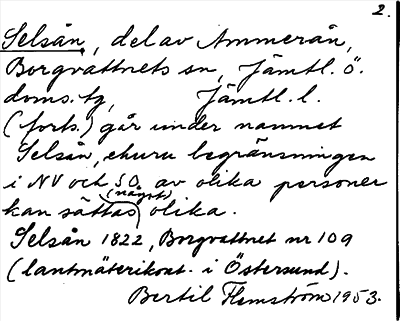 2.
Selsån, del av Ammerån,
Borgvattnets sn, Jämtl. ö.
doms. tg, Jämtl. l.
(forts.) går under namnet
Selsån, churu begränsningen
i NV och SO av olika personer
(något)
kan sättas olika.
Selsån 1822, Borgvattnet nr 109
(lantmäterikont. i Östersund).
Bertil Flemström 1953.